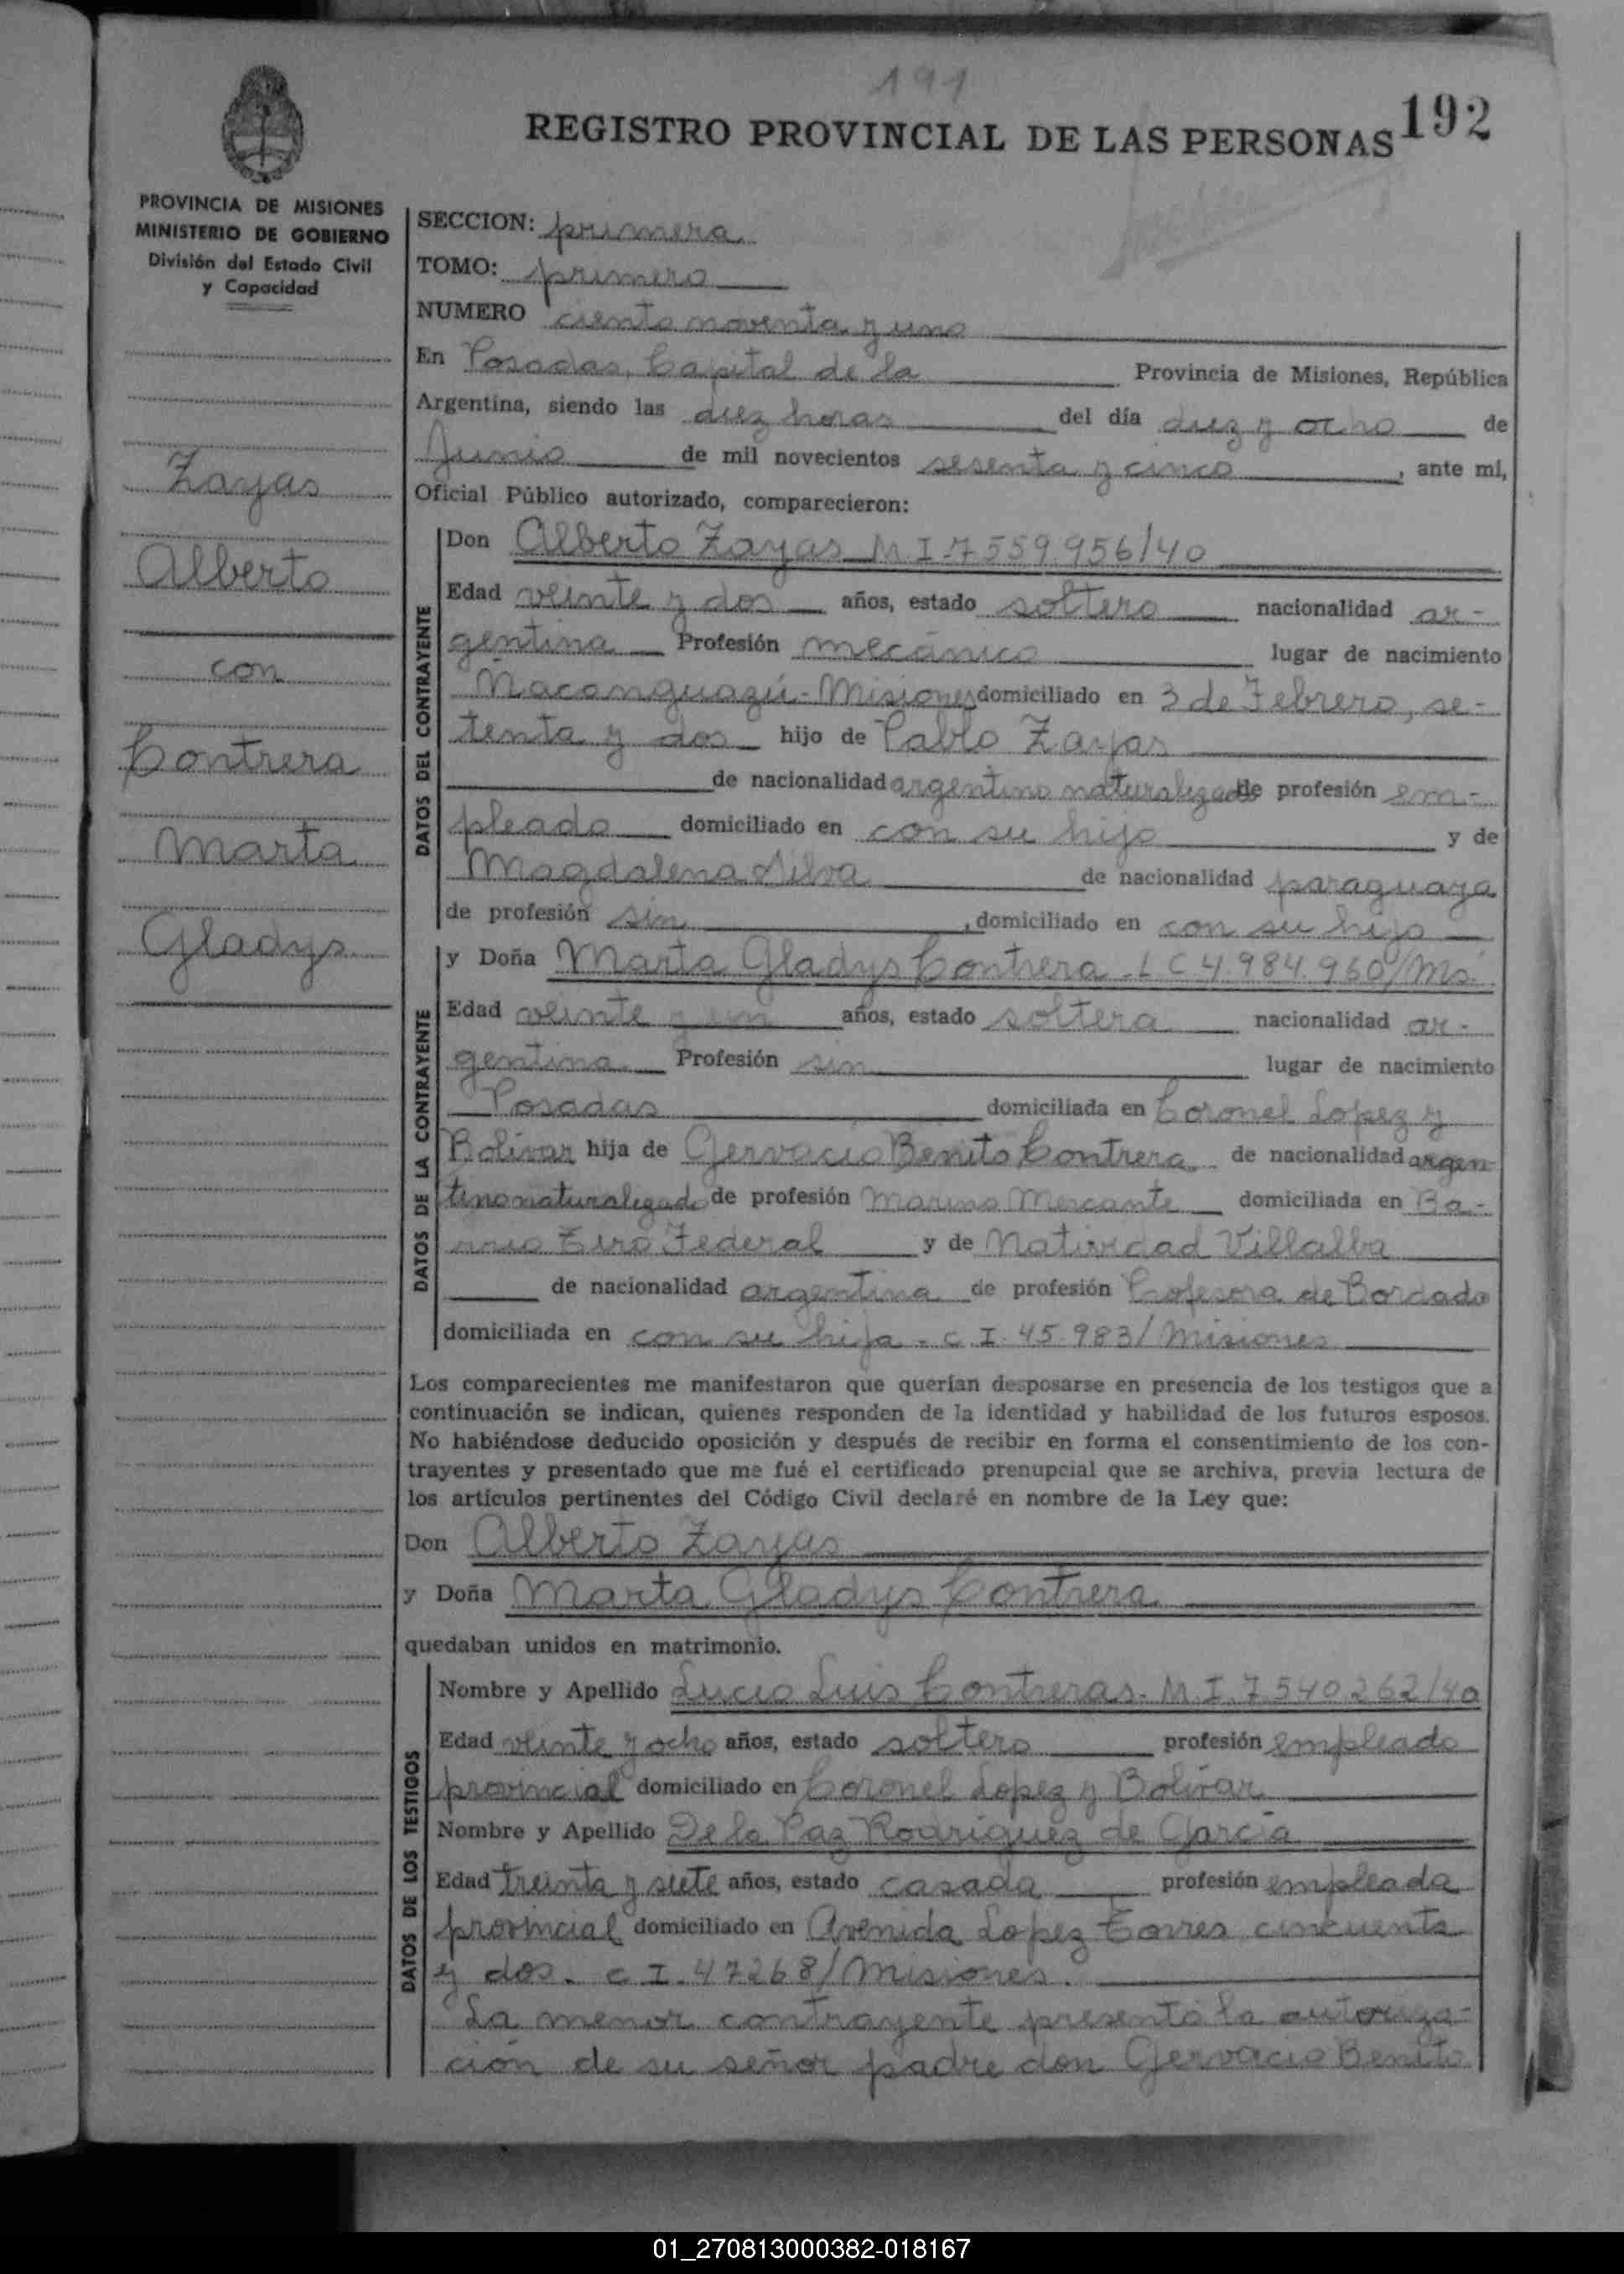 191
REGISTRO PROVINCIAL DE LAS PERSONAS
192
PROVINCIA DE MISIONES
MINISTERIO DE GOBIERNO
División del Estado Civil
y Capacidad
Zayas
Alberto
con
Contrera
Marta
Gladys
SECCION: primera
TOMO: primero
NUMERO ciento noventa y uno
En Posadas, Capital de la Provincia de Misiones, República
Argentina, siendo las diez horas del día diez y ocho de
Junio de mil novecientos sesenta y cinco, ante mí,
Oficial Público autorizado, comparecieron:
DATOS DEL CONTRAYENTE
Don Alberto Zayas M I 7559.956/40
Edad veinte y dos años, estado soltero nacionalidad ar-
gentina Profesión mecánico lugar de nacimiento
Ñacanguazú - Misiones domiciliado en 3 de Febrero, se-
tenta y dos hijo de Pablo Zayas
de nacionalidad argentino naturalizado de profesión em-
pleado domiciliado en con su hijo y de
Magdalena Silva de nacionalidad paraguaya
de profesión sin, domiciliado en con su hijo
DATOS DE LA CONTRAYENTE
y Doña Marta Gladys Contrera - L C 4.984.960/Ms.
Edad veinte y un años, estado soltera nacionalidad ar-
gentina Profesión sin lugar de nacimiento
Posadas domiciliada en Coronel Lopez y
Bolívar hija de Gervacio Benito Contrera de nacionalidad argen
tino naturalizado de profesión Marino Mercante domiciliada en Ba-
rrio Tiro Federal y de Natividad Villalba
de nacionalidad argentina de profesión Profesora de Bordado
domiciliada en con su hija - C. I. 45.983/Misiones
Los comparecientes me manifestaron que querían desposarse en presencia de los testigos que a
continuación se indican, quienes responden de la identidad y habilidad de los futuros esposos.
No habiéndose deducido oposición y después de recibir en forma el consentimiento de los con-
trayentes y presentado que me fué el certificado prenupcial que se archiva, previa lectura de
los artículos pertinentes del Código Civil declaré en nombre de la Ley que:
Don Alberto Zayas
y Doña Marta Gladys Contrera
quedaban unidos en matrimonio.
DATOS DE LOS TESTIGOS
Nombre y Apellido Lucio Luis Contreras - M. I. 7.540.262/40
Edad veinte y ocho años, estado soltero profesión empleado
provincial domiciliado en Coronel Lopez y Bolívar
Nombre y Apellido De la Paz Rodríguez de García
Edad treinta y siete años, estado casada profesión empleada
provincial domiciliado en Avenida Lopez Torres cincuenta
y dos. C I. 47268/Misiones.
La menor contrayente presentó la autoriza-
ción de su señor padre don Gervacio Benito
01_270813000382-018167